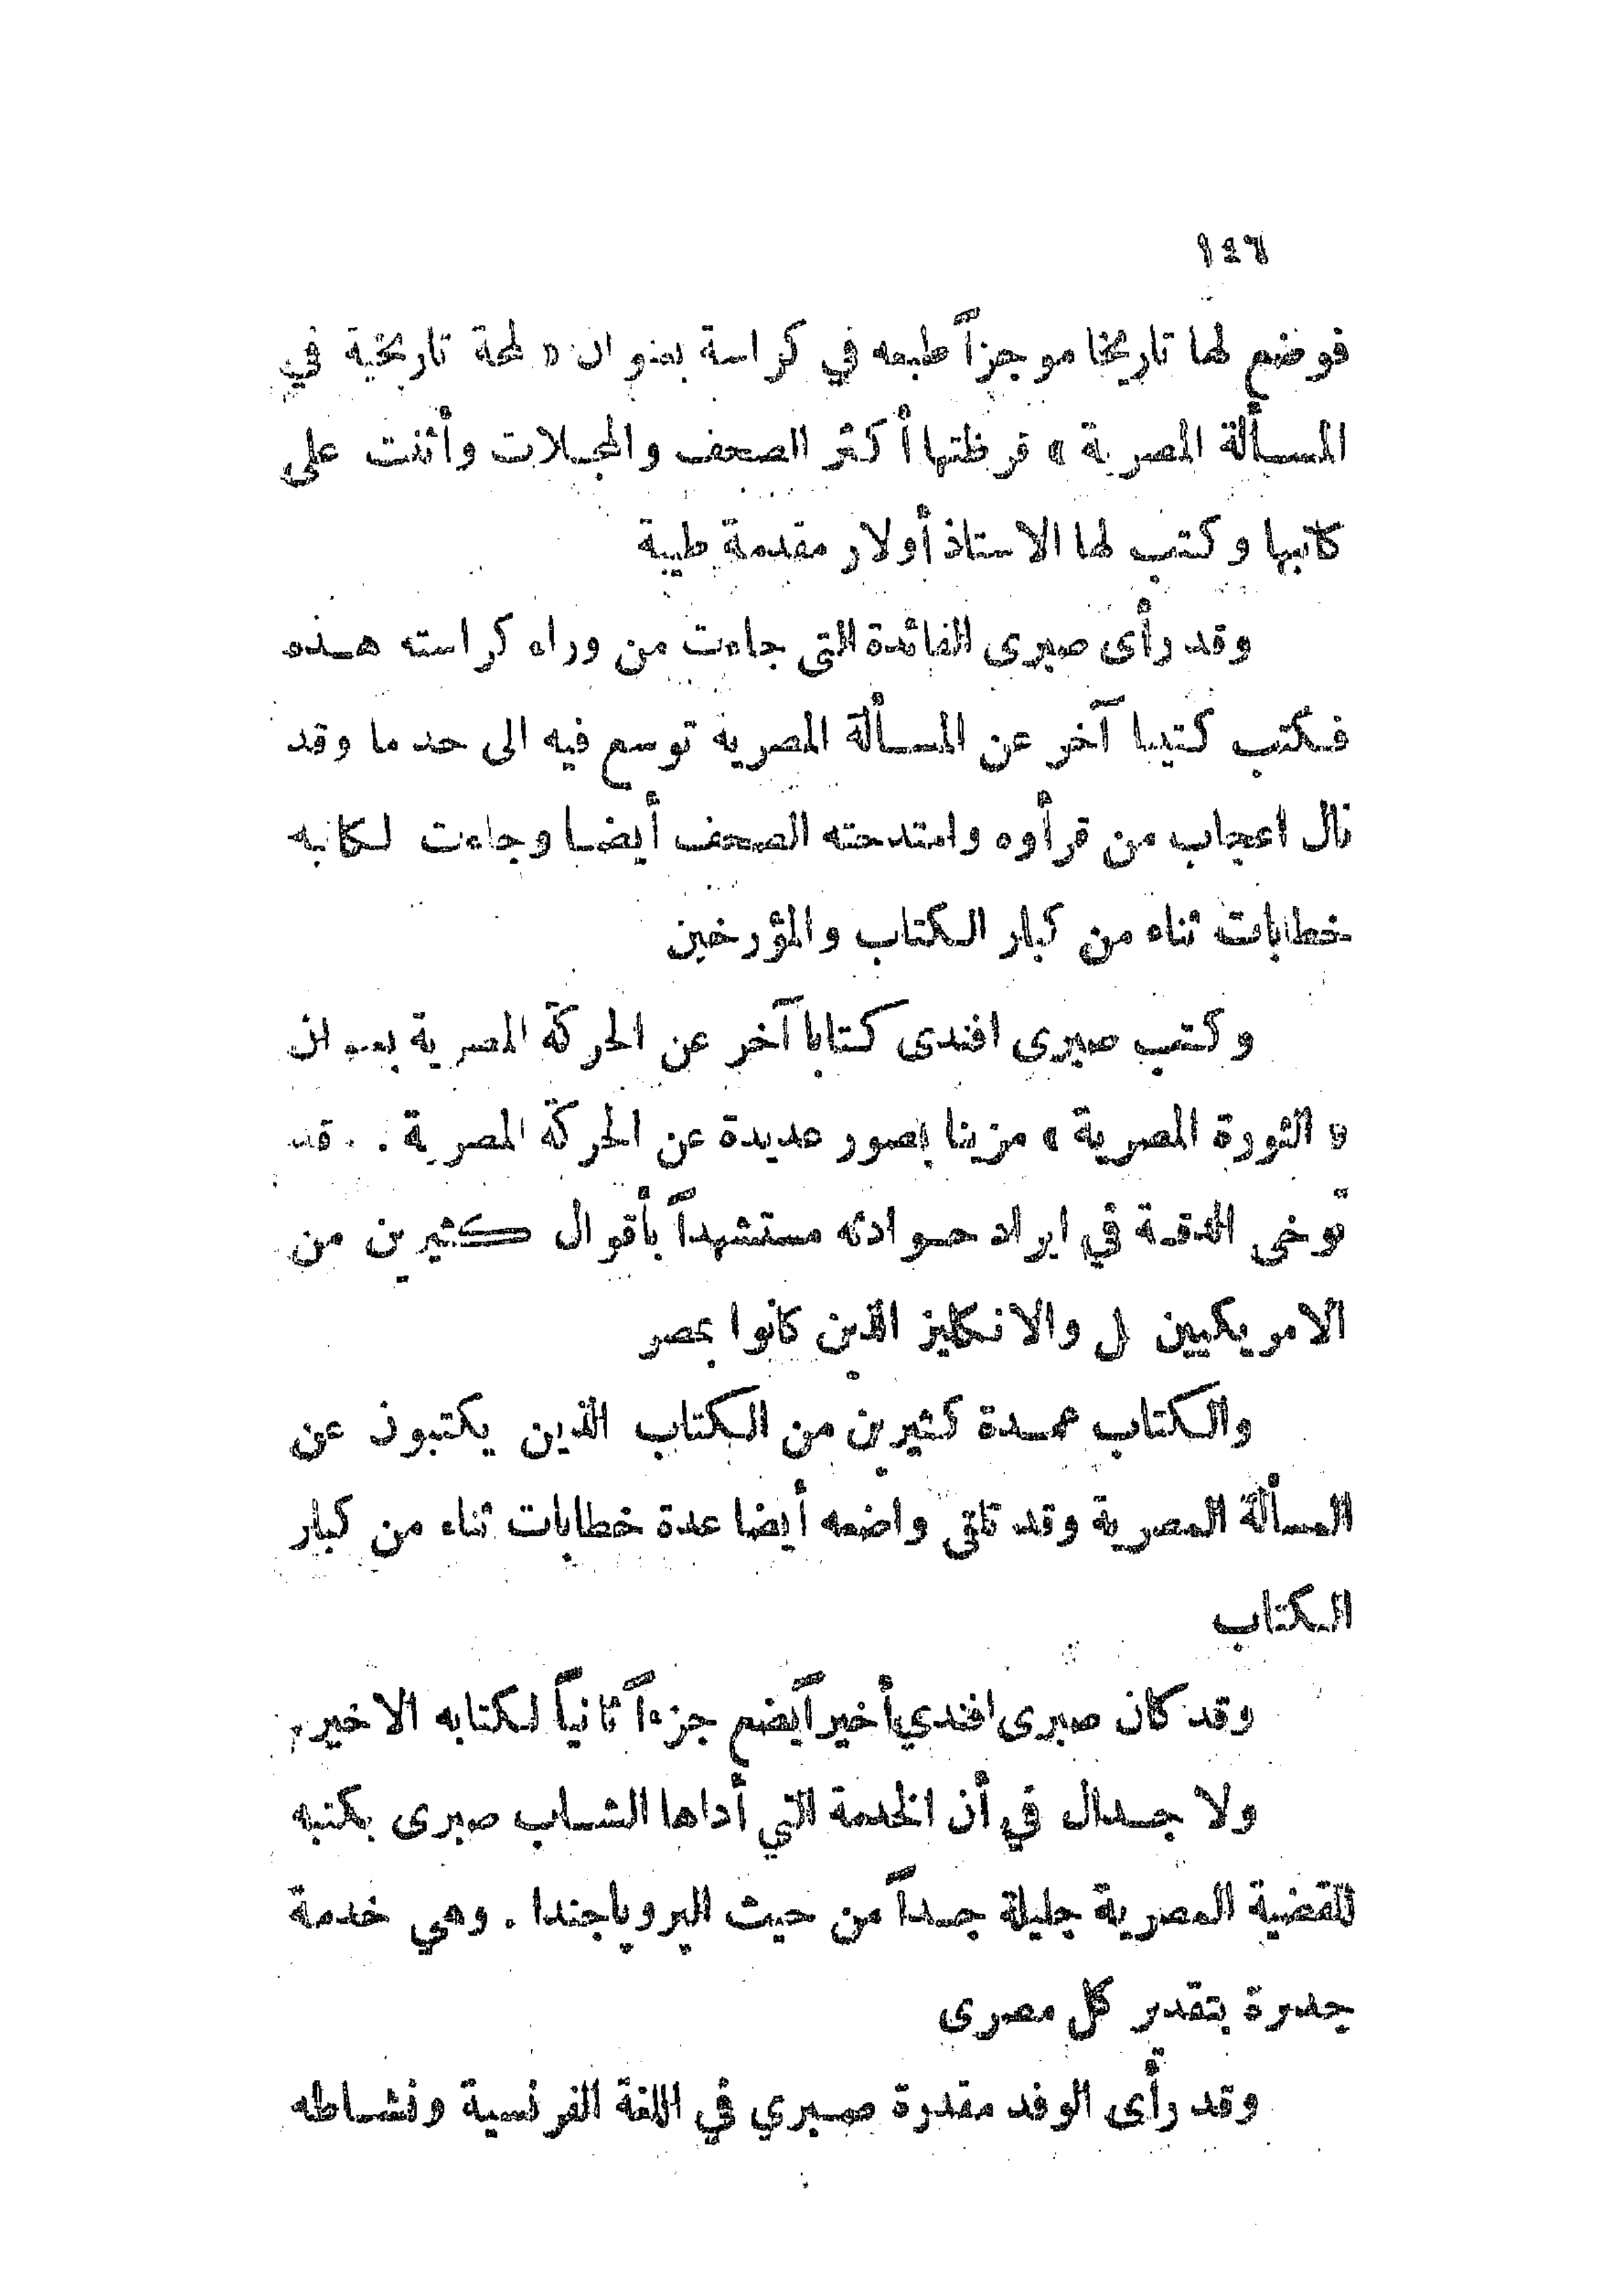 ١٤٦
فوضع لها تاريخا موجزاً طبعه في كراسة بعنوان « لمحة تاريخية في
المسألة المصرية » قرظتها أكثر الصحف والمجلات وأثنت على
كاتبها وكتب لها الاستاذ أولار مقدمة طيبة
وقد رأى صبرى الفائدة التى جاءت من وراء كراسته هذه
فكتب كتيبا آخر عن المسألة المصرية توسع فيه الى حد ما وقد
نال اعجاب من قرأوه وامتدحته الصحف أيضا وجاءت لكاتبه
خطابات ثناء من كبار الكتاب والمؤرخين
وكتب صبرى افندى كتابا آخر عن الحركة المصرية بعنوان
« الثورة المصرية » مزينا بصور عديدة عن الحركة المصرية . وقد
توخى الدقة في ايراد حوادثه مستشهداً بأقوال كثيرين من
الامريكيين بل والانكليز الذين كانوا بمصر
والكتاب عمدة كثيرين من الكتاب الذين يكتبون عن
المسألة المصرية وقد تلقى واضعه أيضا عدة خطابات ثناء من كبار
الكتاب
وقد كان صبرى افندي أخيراً يضع جزءاً ثانياً لكتابه الاخير
ولا جدال في أن الخدمة التي أداها الشاب صبرى بكتبه
للقضية المصرية جليلة جداً من حيث البروپاجندا . وهي خدمة
جديرة بتقدير كل مصرى
وقد رأى الوفد مقدرة صبري في اللغة الفرنسية ونشاطه